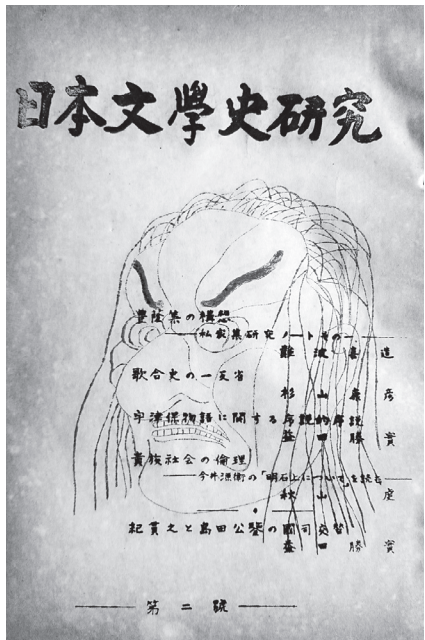 日本文學史研究
豊蔭集の構想
——私家集研究ノートその一——
難波喜造
歌合史の一反省
杉山康彦
宇津保物語に関する序説的解説
益田勝實
貴族社会の倫理
——今井源衛の「明石上について」を読む——
秋山虔
紀貫之と島田公鑒の國司交替
益田勝實
——第二號——